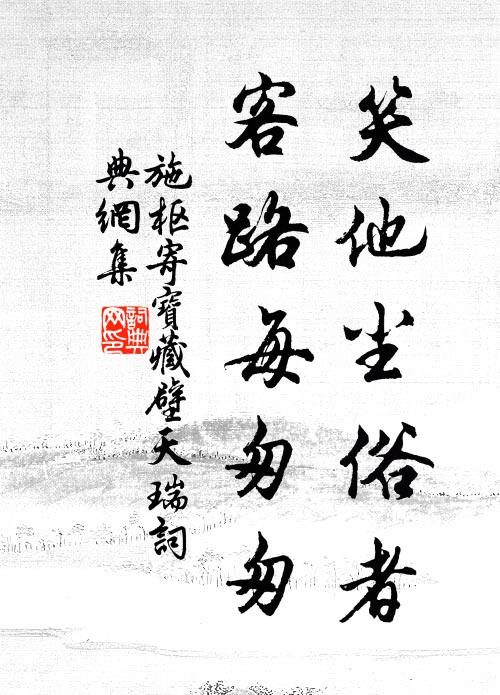 笑他尘俗者
客路每匆匆
施枢寄寶藏壁天瑞詞
典網集
詞典
网印